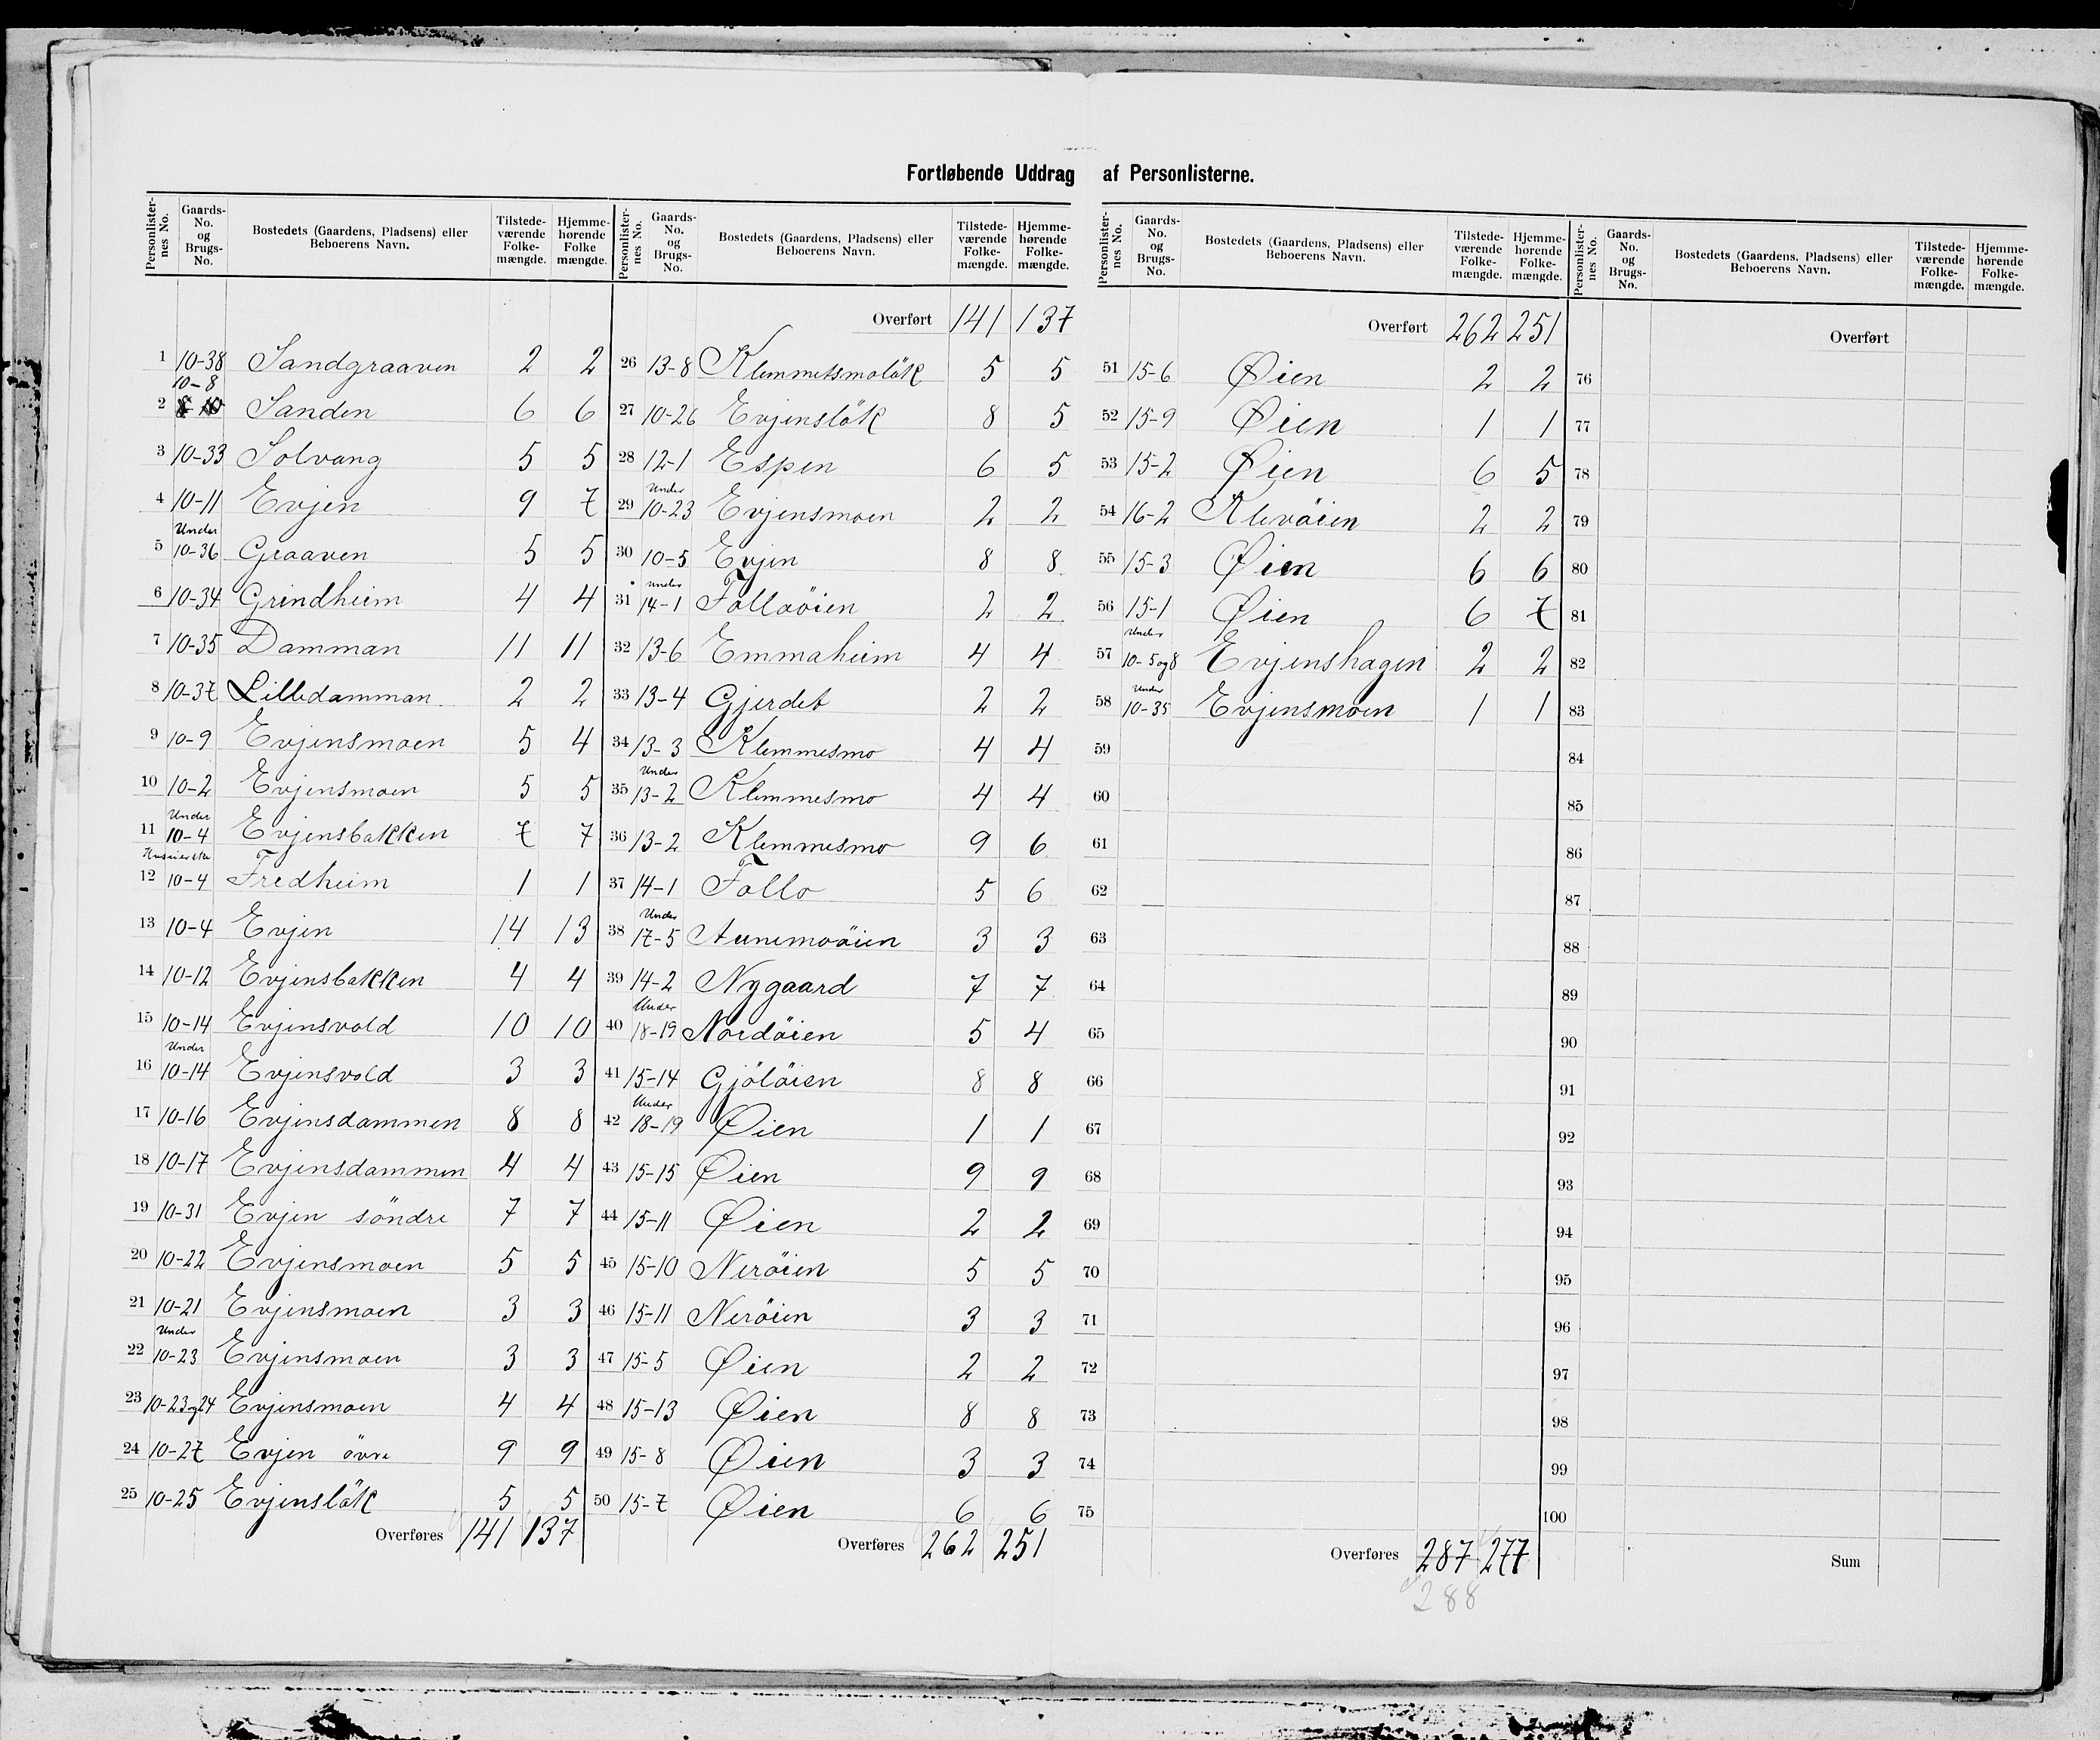 Fortløbende Uddrag af Personlisterne.
Personlisternes No. Gaards-No. og Brugs-No. Bostedets (Gaardens, Pladsens) eller Beboerens Navn. Tilstedeværende Folkemængde. Hjemmehørende Folkemængde.
1 10-38 Sandgraaven 2 2
2 10-8 Sanden 6 6
3 10-33 Solvang 5 5
4 10-11 Evjen 9 7
5 Under 10-36 Graaven 5 5
6 10-34 Grindheim 4 4
7 10-35 Damman 11 11
8 10-37 Lilledamman 2 2
9 10-9 Evjensmoen 5 4
10 10-2 Evjensmoen 5 5
11 Under 10-4 Evjensbakken 7 7
12 10-4 Fredheim 1 1
13 10-4 Evjen 14 13
14 10-12 Evjensbakken 4 4
15 10-14 Evjensvold 10 10
16 Under 10-14 Evjensvold 3 3
17 10-16 Evjensdammen 8 8
18 10-17 Evjensdammen 4 4
19 10-31 Evjen söndre 7 7
20 10-22 Evjensmoen 5 5
21 10-21 Evjensmoen 3 3
22 Under 10-23 Evjensmoen 3 3
23 10-23og24 Evjensmoen 4 4
24 10-27 Evjen övre 9 9
25 10-25 Evjenslök 5 5
Overføres 141 137
Personlisternes No. Gaards-No. og Brugs-No. Bostedets (Gaardens, Pladsens) eller Beboerens Navn. Tilstedeværende Folkemængde. Hjemmehørende Folkemængde.
Overført 141 137
26 13-8 Klemmetsmolök 5 5
27 10-26 Evjenslök 8 5
28 12-1 Espen 6 5
29 Under 10-23 Evjensmoen 2 2
30 10-5 Evjen 8 8
31 under 14-1 Folloöien 2 2
32 13-6 Emmaheim 4 4
33 13-4 Gjerdet 2 2
34 13-3 Klemmesmo 4 4
35 Under 13-2 Klemmesmo 4 4
36 13-2 Klemmesmo 9 6
37 14-1 Follo 5 6
38 Under 17-5 Aunemoöien 3 3
39 14-2 Nygaard 7 7
40 Under 18-19 Nordöien 5 4
41 15-14 Gjölöien 8 8
42 Under 18-19 Øien 1 1
43 15-15 Øien 9 9
44 15-11 Øien 2 2
45 15-10 Neröien 5 5
46 15-11 Neröien 3 3
47 15-5 Øien 2 2
48 15-13 Øien 8 8
49 15-8 Øien 3 3
50 15-7 Øien 6 6
Overføres 262 251
Personlisternes No. Gaards-No. og Brugs-No. Bostedets (Gaardens, Pladsens) eller Beboerens Navn. Tilstedeværende Folkemængde. Hjemmehørende Folkemængde.
Overført 262 251
51 15-6 Øien 2 2
52 15-9 Øien 1 1
53 15-2 Øien 6 5
54 16-2 Klevöien 2 2
55 15-3 Øien 6 6
56 15-1 Øien 6 7
57 Under 10-5og8 Evjenshagen 2 2
58 Under 10-35 Evjensmoen 1 1
59
60
61
62
63
64
65
66
67
68
69
70
71
72
73
74
75
Overføres 287 277
288
Personlisternes No. Gaards-No. og Brugs-No. Bostedets (Gaardens, Pladsens) eller Beboerens Navn. Tilstedeværende Folkemængde. Hjemmehørende Folkemængde.
Overført
76
77
78
79
80
81
82
83
84
85
86
87
88
89
90
91
92
93
94
95
96
97
98
99
100
Sum